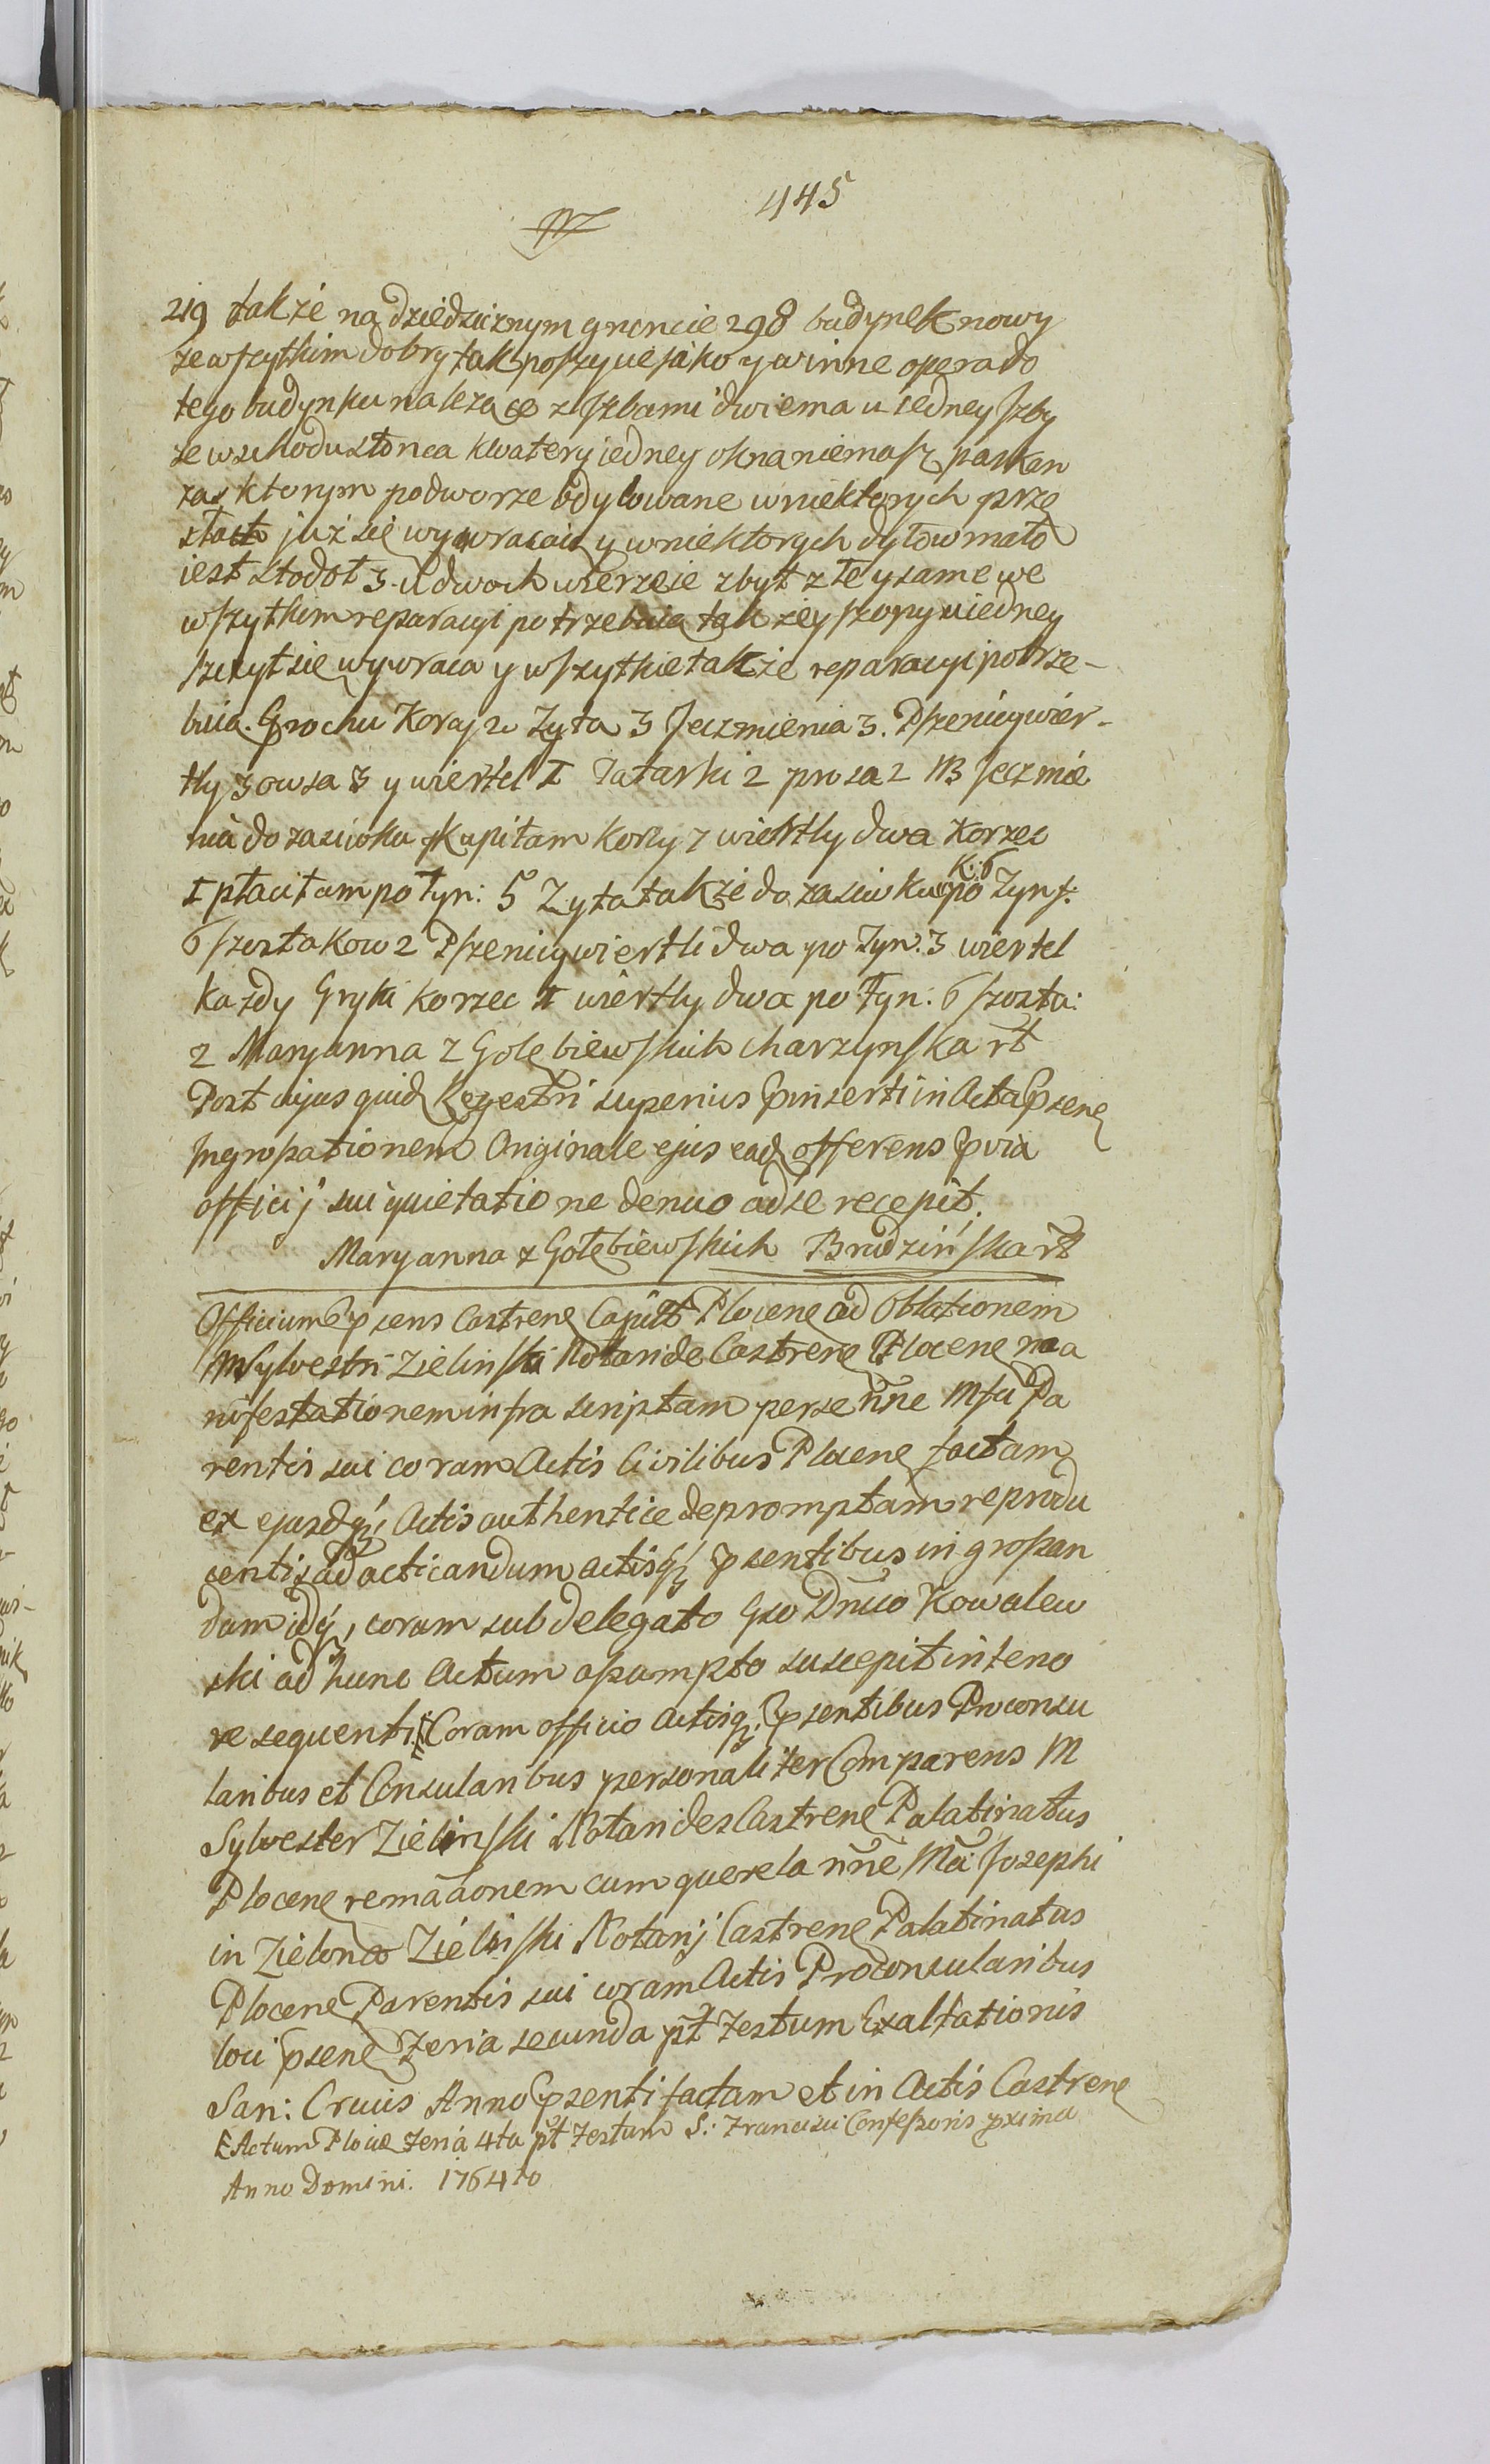 445
219 także na dziedzicznym gruncie 298 budynek nowy
ze wszytkim dobry tak poszycie jako y winne opera do
tego budynku nalezące z Jzbami dwiema u iedney Jzby
ze wschodu słonca kwatery iedney okna niemasz parkan
za ktorym podworze odylowane w niektorych prze
słach już się wywracaią y w niektorych dylow mało
iest stodoł 3. U dwoch wierzeie zbyt złe y same we
wszytkim reparacyi potrzebuią także y szopy u iedney
szczyt sie wywraca y wszytkie także reparacyi potrze-
buią. Grochu Korcy 2 Zyta 3 Jęczmienia 3. Pszenicy wier-
tly 3 owsa 3 y wiertel I Tatarki 2 prosa 2 NB Jęczmie
nia do zasiewku Kupiłam Korcy 7 wiertly dwa Korzec
I płaciłam po Tyn: 5 Zyta także do zasiewku K: 6 po Tynf:
6 szostakow 2 Pszenicy wiertli dwa po Tyn: 3 wiertel
każdy Gryki Korzec I wiertly dwa po Tyn: 6 szosta:
2 Maryanna z Gołębiewskich Charzynska rt
Post cujus quid Regestri superius inserti in Acta psene
Ingrossationem Originale ejus eadq offerens pvia
officij sui quietatione denuo ad se recepit.
Maryanna z Gołębiewskich Brudzińska rt
Officium psens Castrene Capitt Plocene ad Oblationem
M Sylvestri Zielinski Notaride Castrene Plocene ma
nifestationem infra scriptam per se nne Mfci Pa
rentis sui coram Actis Civilibus Plocene factam
ex ejusdqz Actis authentice depromptam reprodu
centis ad acticandum actisqz psentibus ingrossan
dam idqz, coram subdelegato Gso Dnico Kowalew
ski ad hunc Actum assumpto suscepit in teno
re sequenti. Coram officio actisqz psentibus Proconsu
laribus et Consularibus personaliter Comparens M
Sylvester Zielinski Notarides Castrene Palatinatus
Plocene remãaonem cum querela nne Mci Josephi
in Zielona Zielinski Notarij Castrene Palatinatus
Plocene Parentis sui coram Actis Proconsularibus
loci psene Feria secunda pt Festum Exaltationis
San: Crucis Anno psenti factam et in Actis Castrene
Actum Plociæ Feria 4ta pt Festum S: Francisci Confessoris pxima
Anno Domini. 1764to